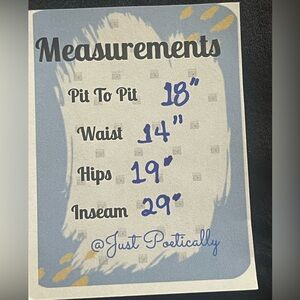 Measurements
Pit To Pit 18"
Waist 14"
Hips 19"
Inseam 29"
@Just Poetically